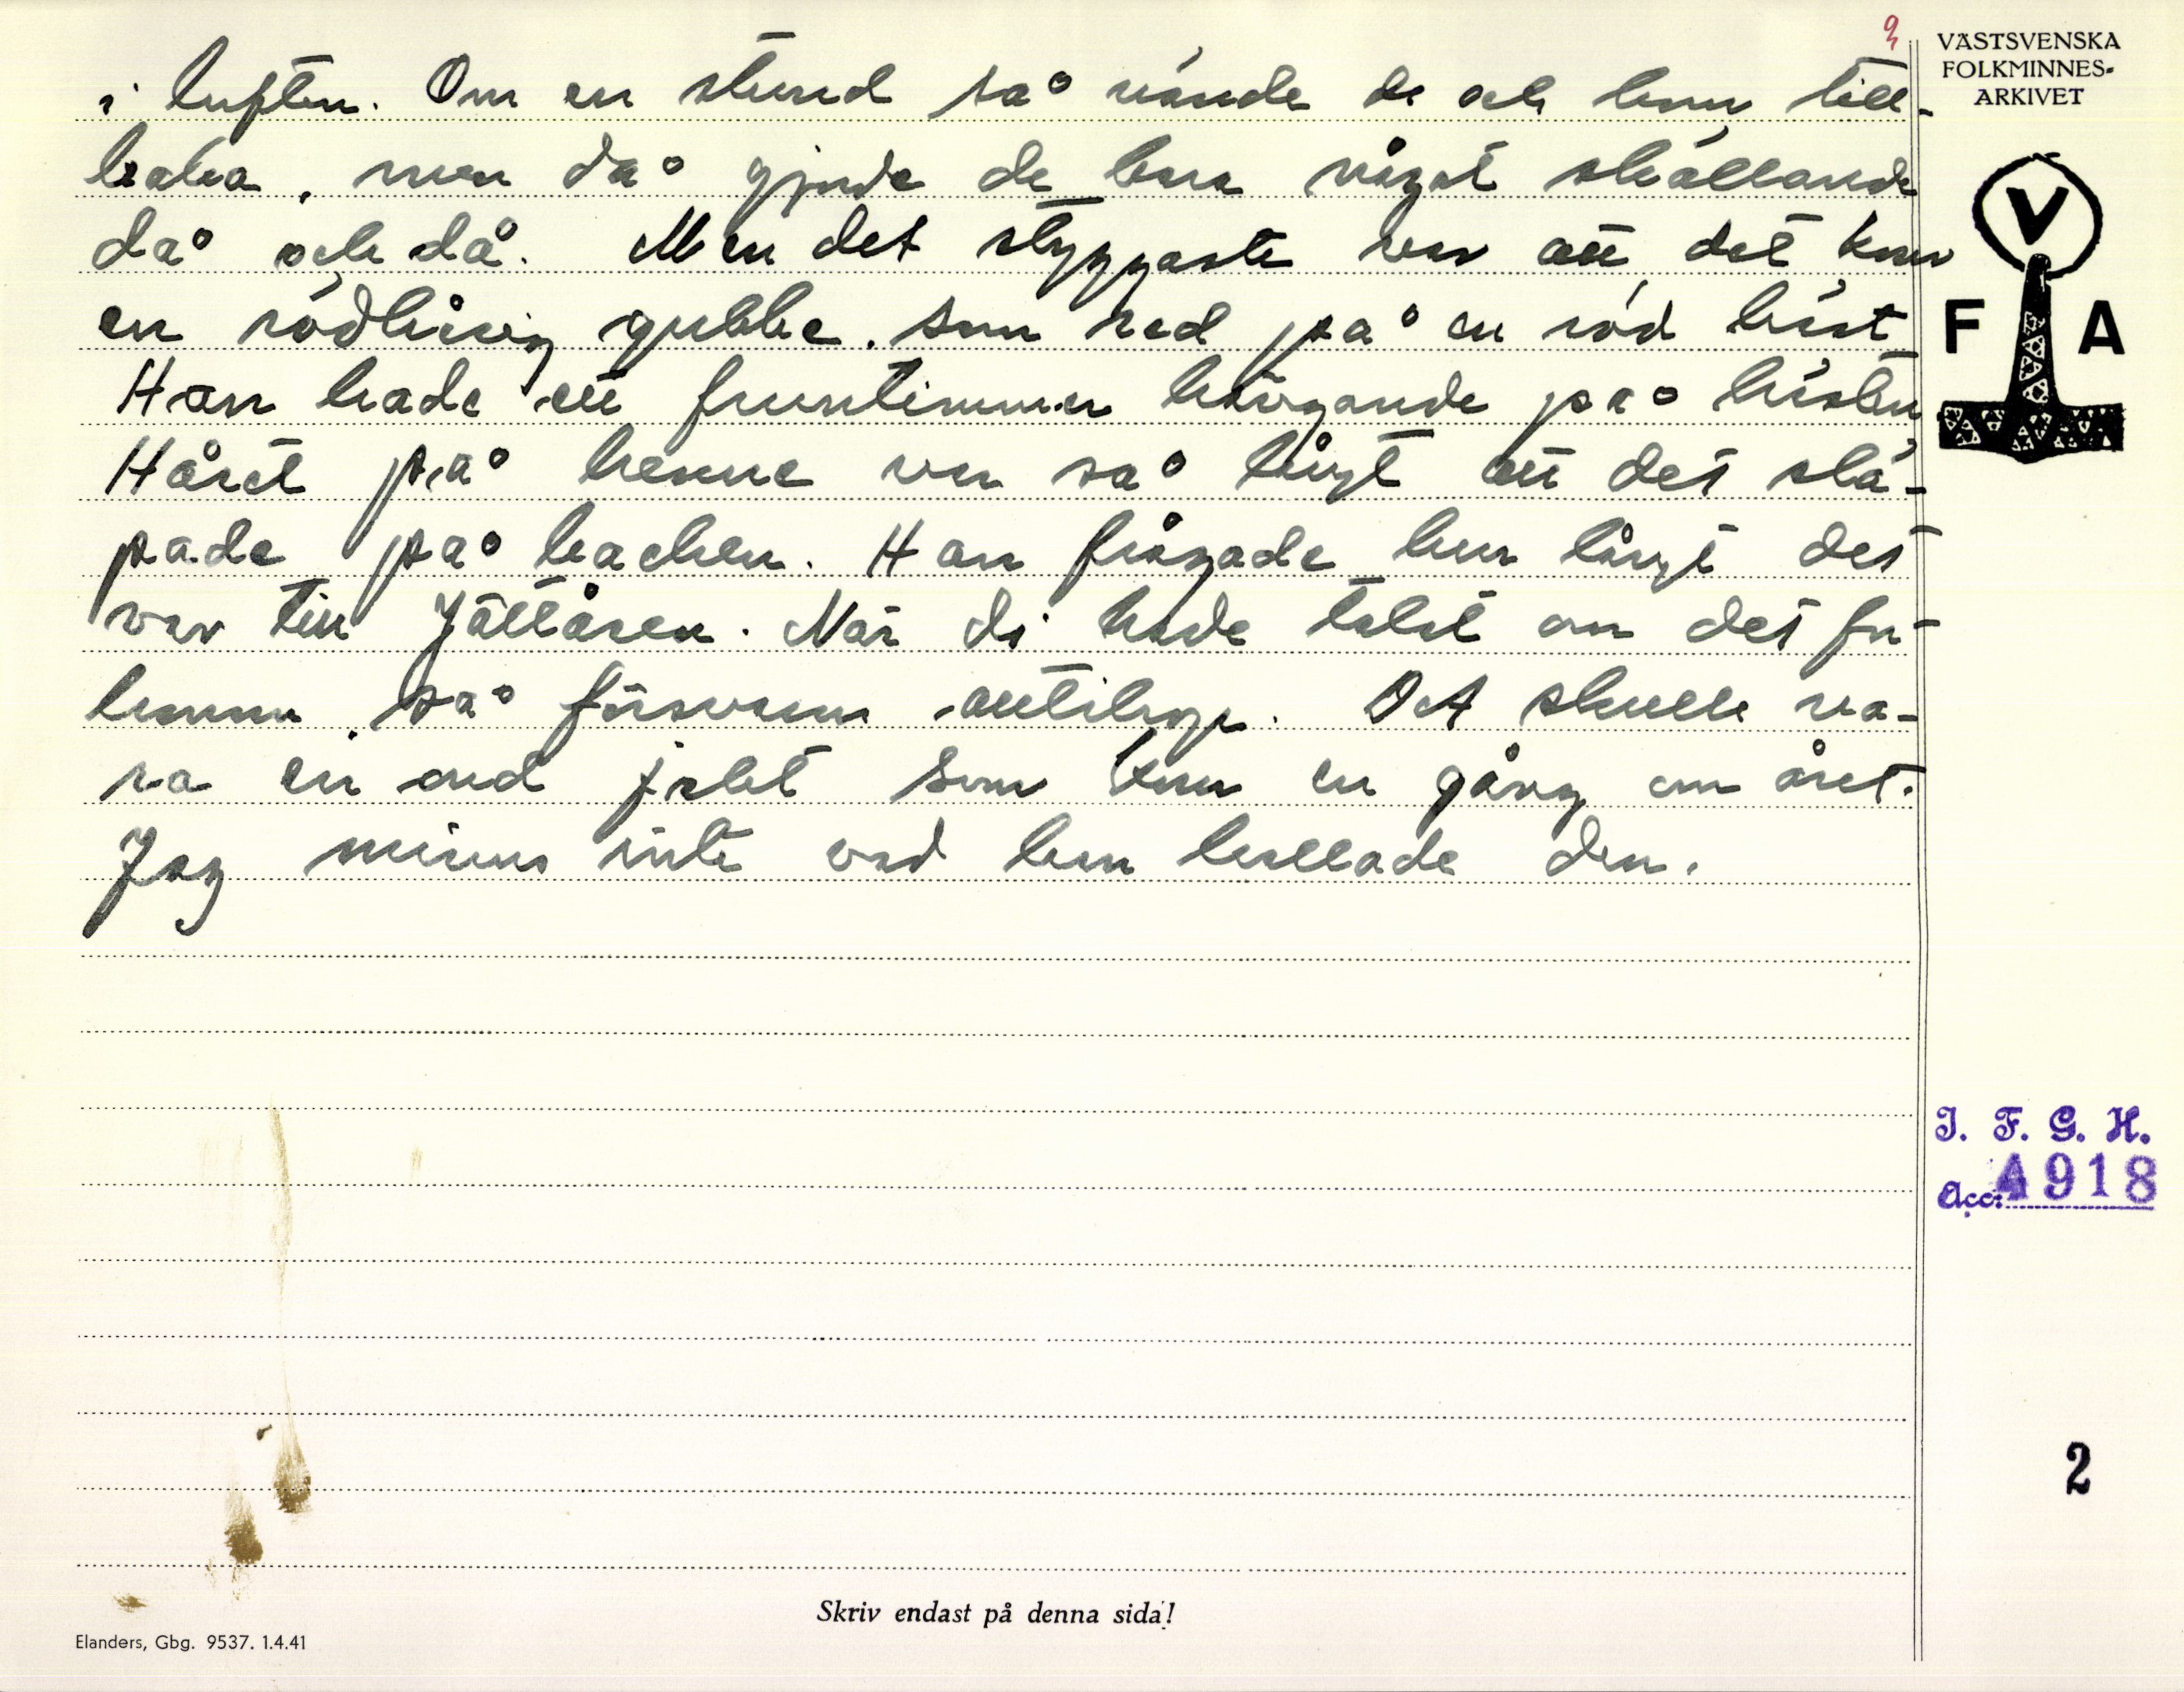 9
VÄSTSVENSKA
FOLKMINNES-
ARKIVET
V
F A
i luften. Om en stund så vände de och kom till-
baka, men då gjorde de bara något skällande
då och då. Men det styggaste var att det kom
en rödhårig gubbe som red på en röd häst
Han hade ett fruntimmer hängande på hästen
Håret på henne var så långt att det slä-
pade på backen. Han frågade hur långt det
var till Jättåsen. När di hade talat om det för
honom så försvann alltihop. Det skulle va-
ra en ond jakt som kom en gång om året.
Jag minns inte vad han kallade den.
I. F. G. H.
Acc: 4918
2
Skriv endast på denna sida!
Elanders, Gbg. 9537. 1.4.41